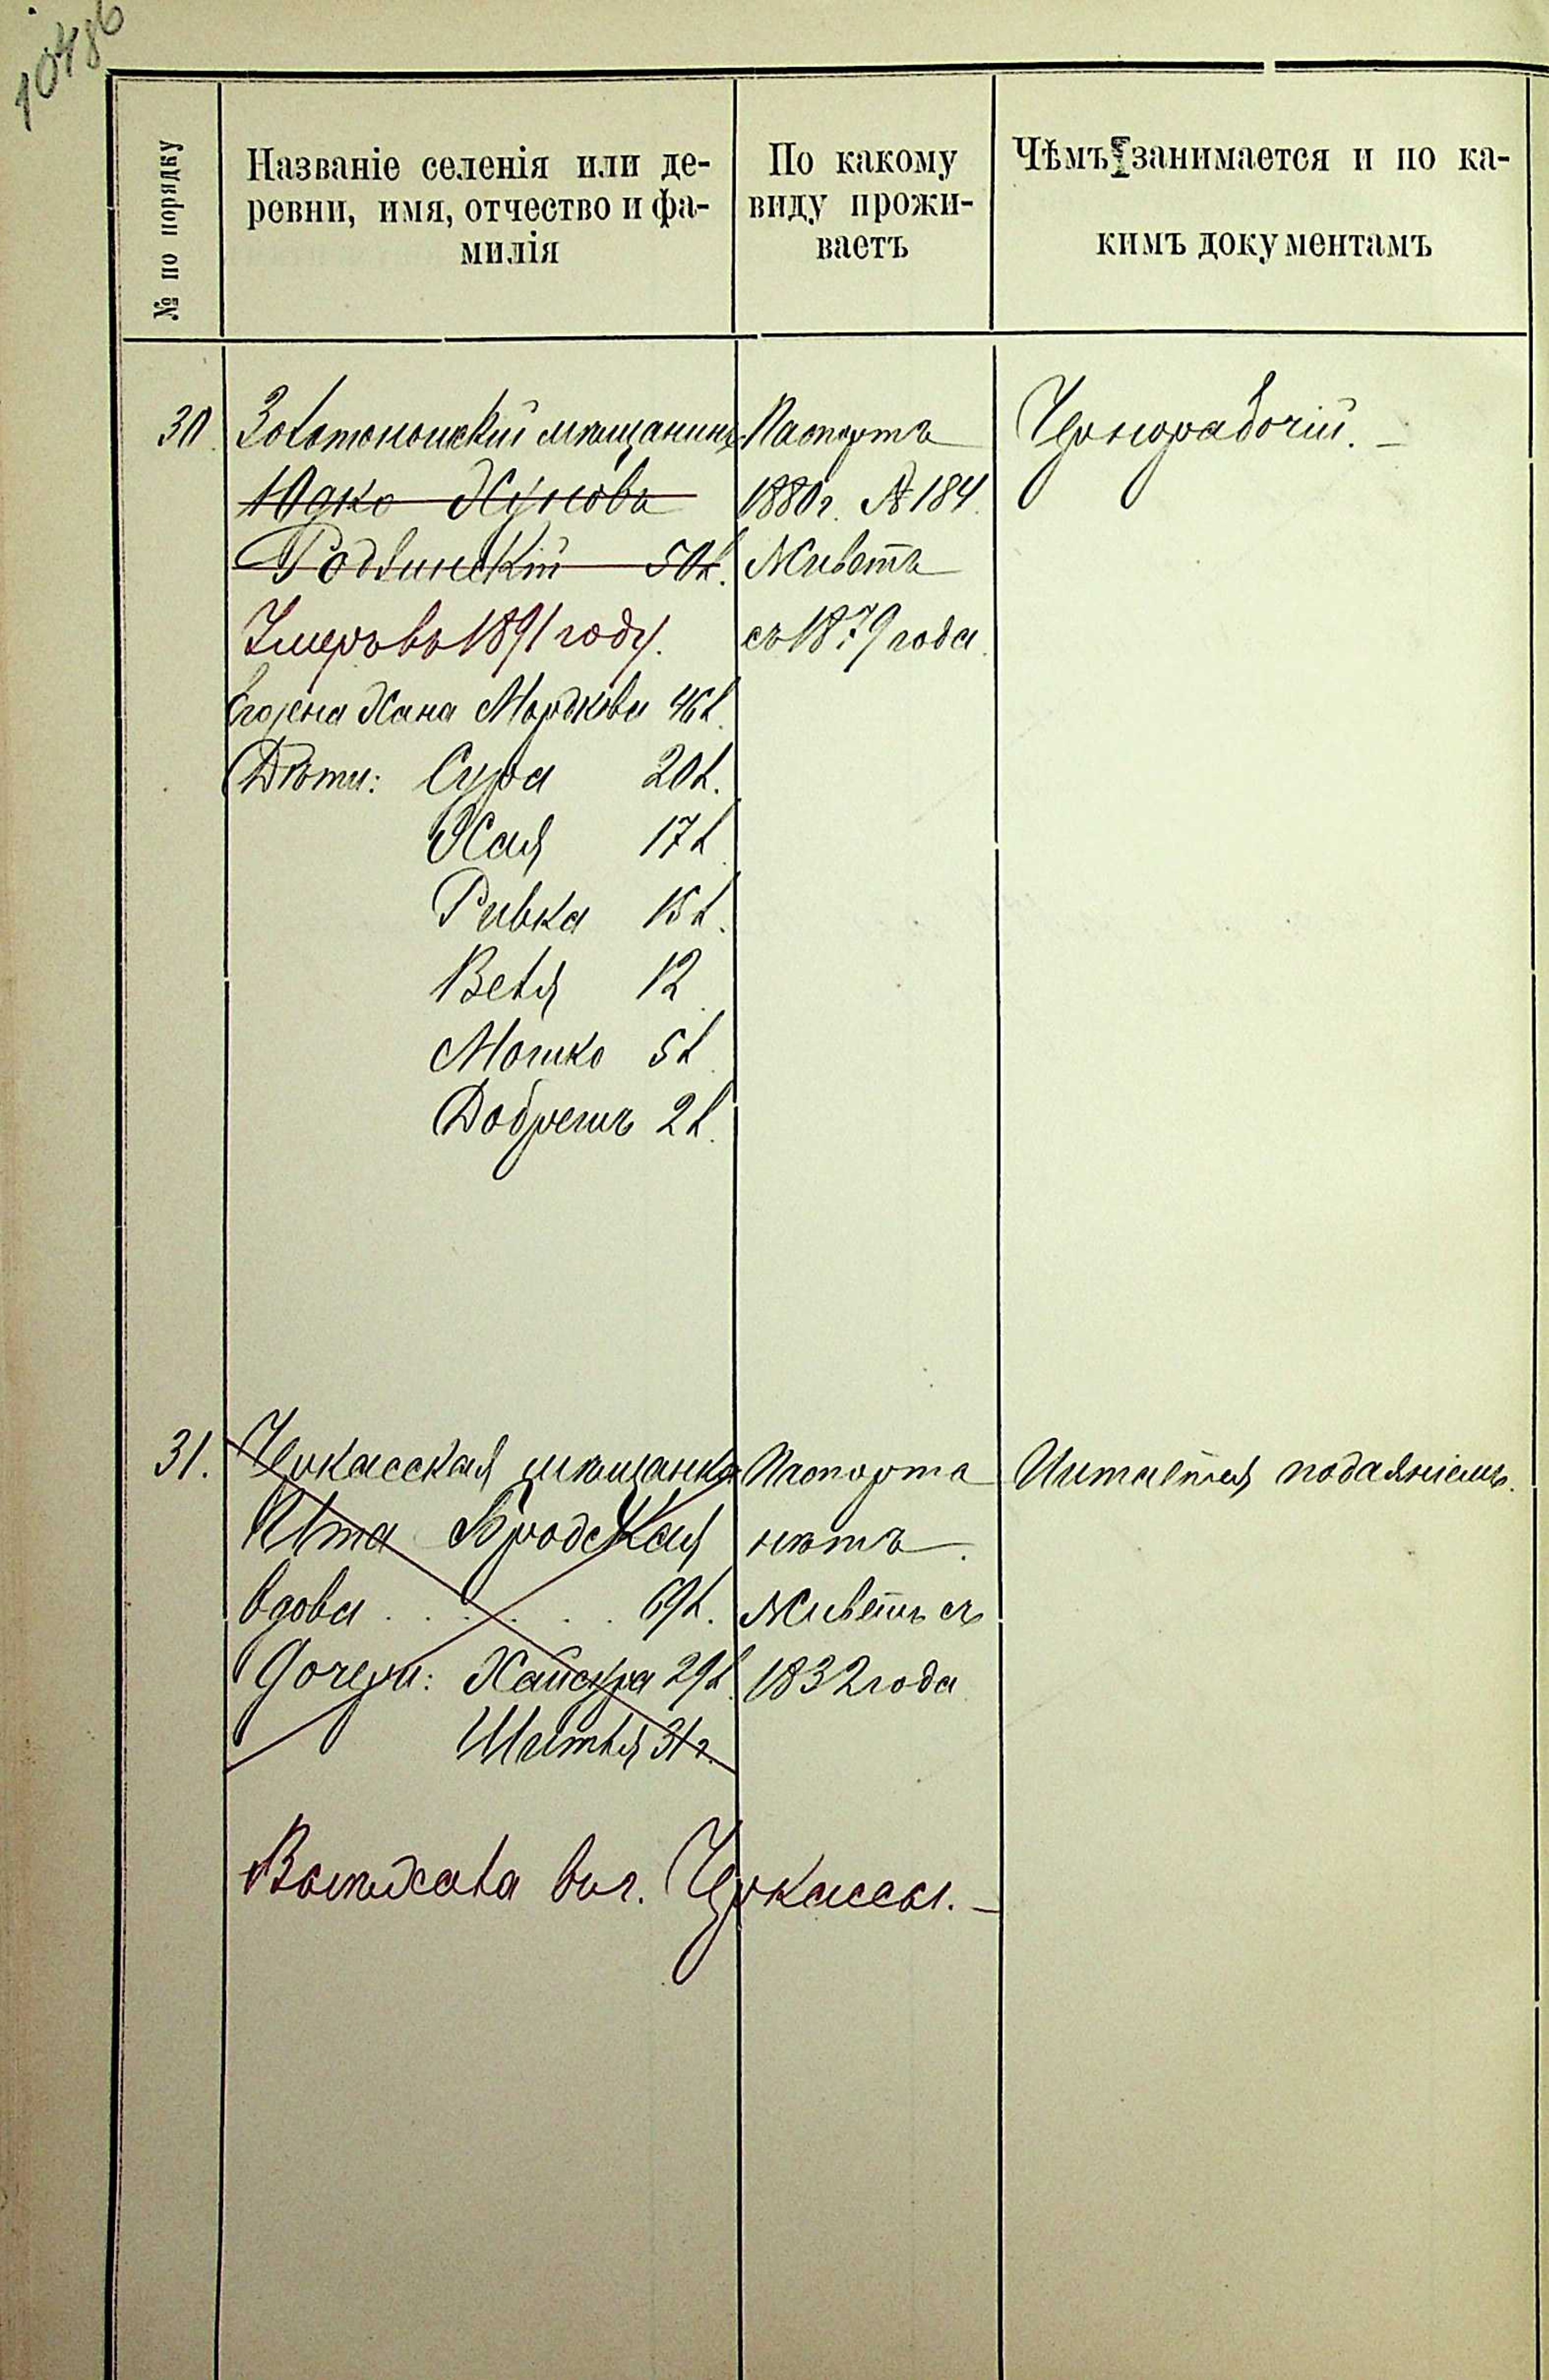 10486
№ по порядку
Названіе селенія или де-
ревни, имя, отчество и фа-
милія
По какому
виду прожи-
ваетъ
Чѣмъ занимается и по ка-
кимъ документамъ
30.
Золотоношскій мѣщанинъ
Юдко Хуновъ
Родзинскій 50 л.
Умеръ въ 1891 году.
Его жена Хана Мордкова 46 л.
Дѣти: Сура 20 л.
Хая 17 л.
Ривка 15 л.
Бейля 12
Мошко 5 л.
Добрешъ 2 л.
Паспортъ
1880 г. № 184.
Живетъ
съ 1879 года.
Чернорабочій. –
31.
Черкасская мѣщанка
Ита Бродская
вдова . . . . . 69 л.
Дочери: Хайсура 29 л.
31 г.
Паспорта
нѣтъ.
Живетъ съ
1832 года
Питается подаяніемъ.
Выѣхала въ г. Черкассы. –